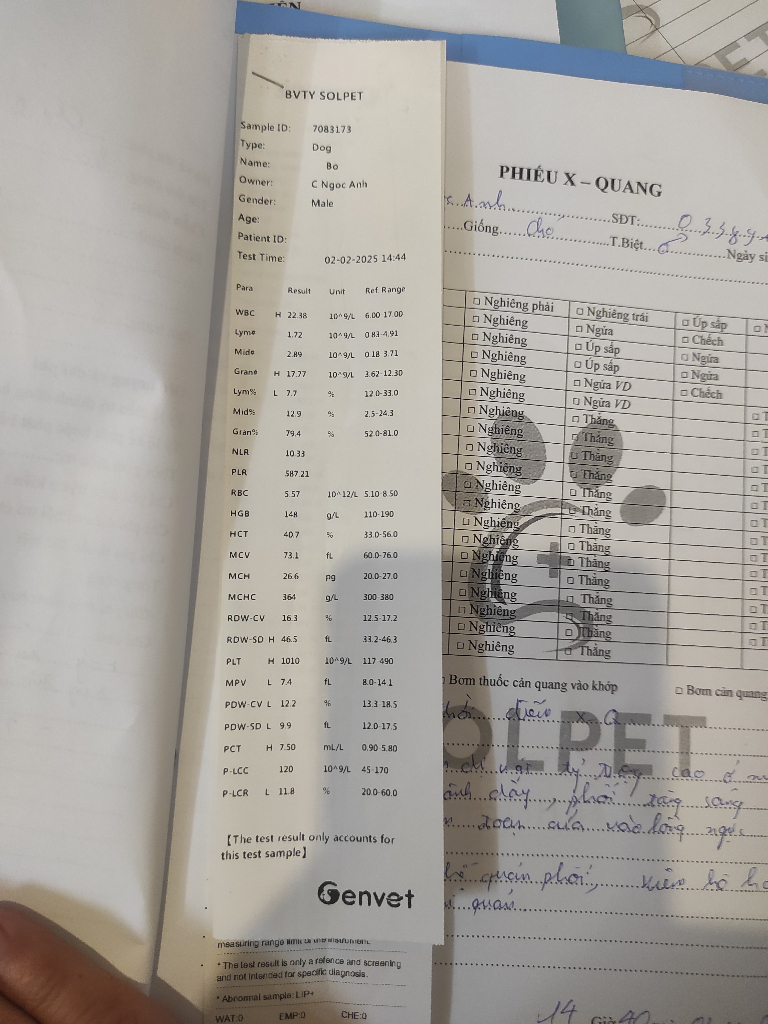 BVTY SOLPET
Sample ID: 7083173
Type: Dog
Name: Bo
Owner: C Ngoc Anh
Gender: Male
Age:
Patient ID:
Test Time: 02-02-2025 14:44
Para Result Unit Ref. Range
WBC H 22.38 10^9/L 6.00 17.00
Lym# 1.72 10^9/L 0.83-4.91
Mid# 2.89 10^9/L 0.18 3.71
Gran# H 17.77 10^9/L 3.62-12.30
Lym% L 7.7 % 12.0-33.0
Mid% 12.9 % 2.5-24.3
Gran% 79.4 % 52.0-81.0
NLR 10.33
PLR 587.21
RBC 5.57 10^12/L 5.10-8.50
HGB 148 g/L 110-190
HCT 40.7 % 33.0-56.0
MCV 73.1 fL 60.0-76.0
MCH 26.6 pg 20.0-27.0
MCHC 364 g/L 300 380
RDW-CV 16.3 % 12.5-17.2
RDW-SD H 46.5 fL 33.2-46.3
PLT H 1010 10^9/L 117 490
MPV L 7.4 fL 8.0-14.1
PDW-CV L 12.2 % 13.3 18.5
PDW-SD L 9.9 fL 12.0-17.5
PCT H 7.50 mL/L 0.90 5.80
P-LCC 120 10^9/L 45-170
P-LCR L 11.8 % 20.0-60.0
【The test result only accounts for
this test sample】
Genvet
measuring range limit of the instrument.
* The test result is only a refence and screening
and not intended for specific diagnosis.
* Abnormal sample: LIP+
WAT:0 EMP:0 CHE:0
PHIẾU X – QUANG
Anh SĐT:
Giống chó T.Biệt ♂ Ngày si
□ Nghiêng phải □ Nghiêng trái □ Úp sấp
□ Nghiêng □ Ngửa □ Chếch
□ Nghiêng □ Úp sấp □ Ngửa
□ Nghiêng □ Úp sấp □ Ngửa
□ Nghiêng □ Ngửa VD □ Chếch
□ Nghiêng □ Ngửa VD
□ Nghiêng □ Thẳng
□ Nghiêng □ Thẳng
□ Nghiêng □ Thẳng
□ Nghiêng □ Thẳng
□ Nghiêng □ Thẳng
□ Nghiêng □ Thẳng
□ Nghiêng □ Thẳng
□ Nghiêng □ Thẳng
□ Nghiêng □ Thẳng
□ Nghiêng □ Thẳng
□ Nghiêng □ Thẳng
□ Nghiêng □ Thẳng
□ Nghiêng □ Thẳng
□ Nghiêng □ Thẳng
Bơm thuốc cản quang vào khớp □ Bơm cản quang
OLPET
X Q
cao ở
dày, phổi tăng sáng
vào lồng ngực
quản phổi, viêm hô
quản
14 Giờ 40